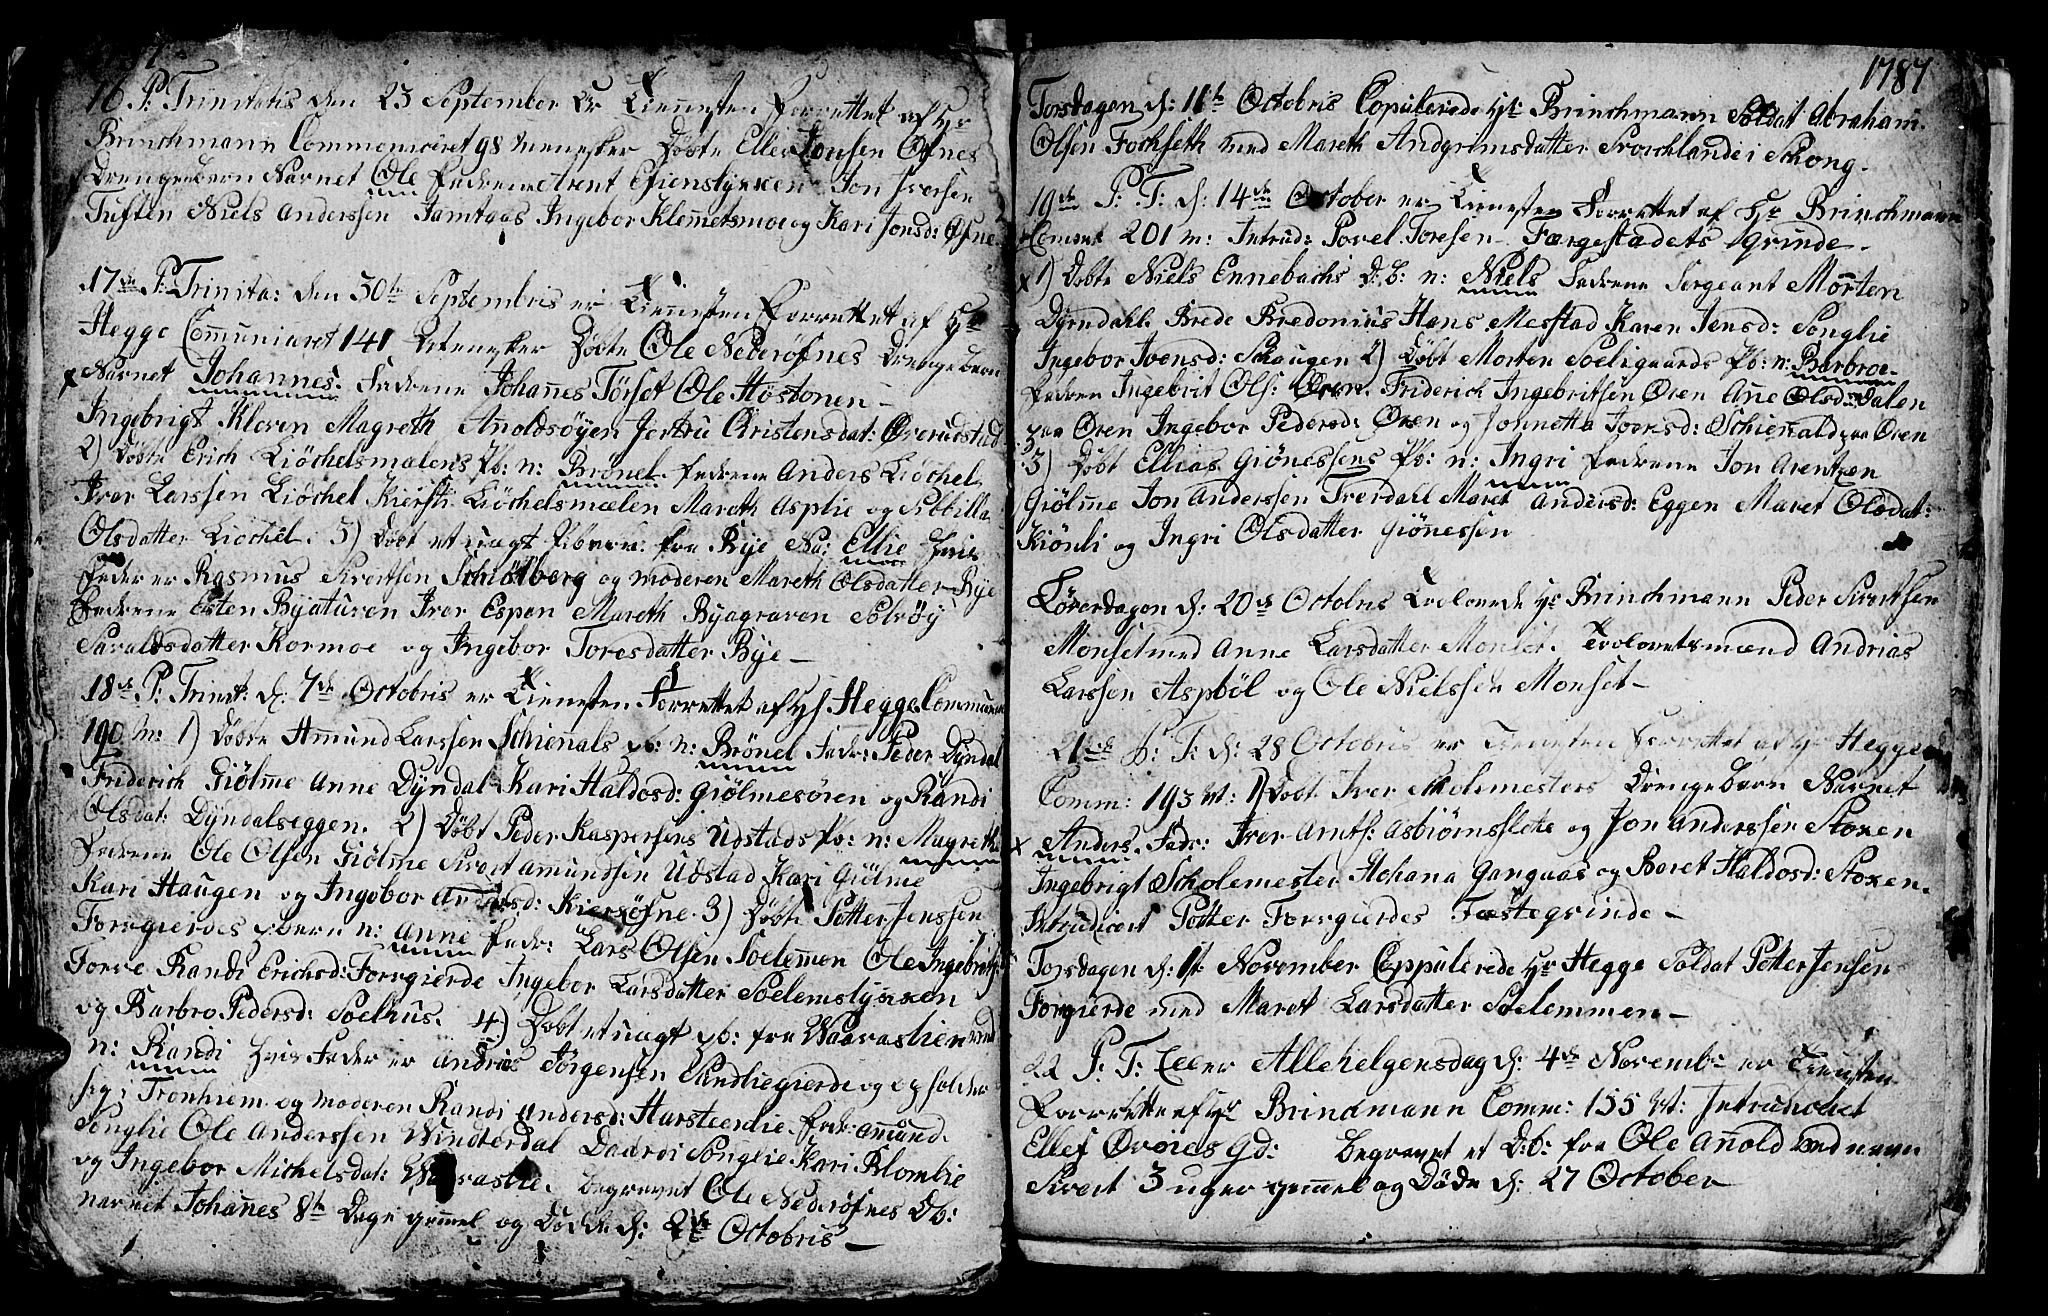 16. P: Trinitatis den 23 September er Tienesten Forrettet af Hr
Brinchmann Commeniceret 98 Menesker Døbte Ellev Jonsen Øfnes
Drengebarn Navnet Ole Fadrene Arent Efienslyxken Jon Iversen
Tuften Niels Anderssen Jamtaas Ingebor Klemetsmoe og Kari Jonsd: Øfne
17de P: Trinita: den 30te Septembris er Tienesten Forrettet af Hr
Hegge Communiceret 141 Menesker Døbte Ole Nederøfnes Drengebarn
x Navnet Johannes. Fadrene Johannes Tørset Ole Høstonen –
Ingebrigt Kleven Magreth Anoldsøyen Jertru Christensdat: Øverudstad
2) Døbte Erich Liøchelsmælens Pb: n: Brønel. Fadrene Anders Liøchel
Iver Larssen Liøchel Kiersti Liøchelsmælen Mareth Asplie og Sibbilla
Olsdatter Liøchel. 3) Døbt et uægt fra Bye Na: Ellie hvis
Fader er Rasmus Sivertsen Schiøtberg og moderen Mareth Olsdatter Bye
Fadrene Esten Byaturen Iver Espen Mareth Byagraven Solrøy
Saraldsdatter Kormoe og Ingebor Toresdatter Bye –
18de P: Trinit: d: 7de Octobris er Tienesten Forrettet af Hr Hegge Commun
190 M: 1) Døbte Amund Larssen Schienals pb: n: Brønel Fadr: Peder Dyndal
Friderich Giølme Anne Dyndal Kari Haldosd: Giølmesøren og Randi
Olsdat: Dyndalseggen. 2) Døbt Peder Kaspersens Udstads Pb: n: Magrethe
Fadrene Ole Olsen Giølme Sivert Amundsen Udstad Kari Giølme
Kari Haugen og Ingebor Kiersøfne. 3) Døbte Petter Jenssen
Forrgierdes pbarn n: Anne Fadr: Lars Olsen Soelemmen Ole Ingebritz
Forve Randi Erichsd: Forrgierde Ingebor Larsdatter Soelemslyxken
og Barbro Pedersd: Soelhus. 4) Døbt et uægt pb: fra Waaraslien ved
n: Randi hvis Fader er Andrias Jørgensen Sandliegierde og opholder
sig i Tronhiem og moderen Randi Andersd: Harsteenlie. Fadr: Amund.
Songlie Ole Anderssen Windterdal Daardi Songlie Kari Blomlie
og Ingebor Michelsdat: Waaraslie. Begravet Ole Nederøfnes Db:
navnet Johannes 8te Dage gamel og Døde d: 2de Octobris –
1787
Torsdagen d: 11te Octobris Copulerede Hr: Brinchmann Soldat Abraham.
Olsen Fochseth med Mareth Andgrimsdatter Svorchlande i Schong.
19de P: T: d: 14de October er Tienesten Forrettet af Hr Brinchmann
Comuni 201 m: Intrud: Povel Toresen Færgestadets Qvinde.
x 1) Døbte Niels Ennebachs D: b: n: Niels Fadrene Sergeant Morten
Dyrndahl. Brede Bredonius Hans Mestad Karen Jensd: Songlie
Ingebor Ivensd: Schaugen 2) Døbt Morten Soeligaards Pb: n: Barbroe
Fadren Ingebrit Ols: Øren. Friderich Ingebritsen Øren Ane Olsd: Dalen
paa Øren Ingebor Pedersd: Øren og Jonnetta Iversd: Schienald paa Øren
3) Døbt Ellias Giønessens Pb: n: Ingri Fadrene Jon Arentzen
Giølme Jon Anderssen Trærdahl Maret Andersd: Eggen Maret Olsdat:
Kiønli og Ingri Olsdatter Giønessen
Løverdagen d: 20de Octobris Trolovede Hr Brinchmann Peder Sivertsen
Monset med Anne Larsdatter Monset. Trolovetsmænd Andrias
Larssen Aspbøl og Ole Nielssen Monset –
21de P: T: d: 28 Octobris er Tienesten Forrettet af Hr Hegge
Comm: 193 M: 1) Døbt Iver Scholemesters Drengebarn Navnet
x Anders. Fadr: Iver Arnts: Asbiørnsflete og Jon Anderssen Stoxen
Ingebrigt Scholemester Hohana Gangaas og Beret Haldosd: Stoxen.
Intrudicert Petter Forrgierdes Fæstegvinde –
Torsdagen d: 1t November Coppulerede Hr Hegge Soldat Petter Jensen
Forgierde med Maret Larsdatter Soelemmen –
22 P: T: Eller Allehelgensdag d: 4de Novemb: er Tienesten
Forrettet af Hr Brincmann Comm: 155 M: Intrudiciret
Ellef Øvøies Qd: Begravet et D:b: fra Ole Anold ved navn
Sivert 3 uger gammel og Døde d: 27 October